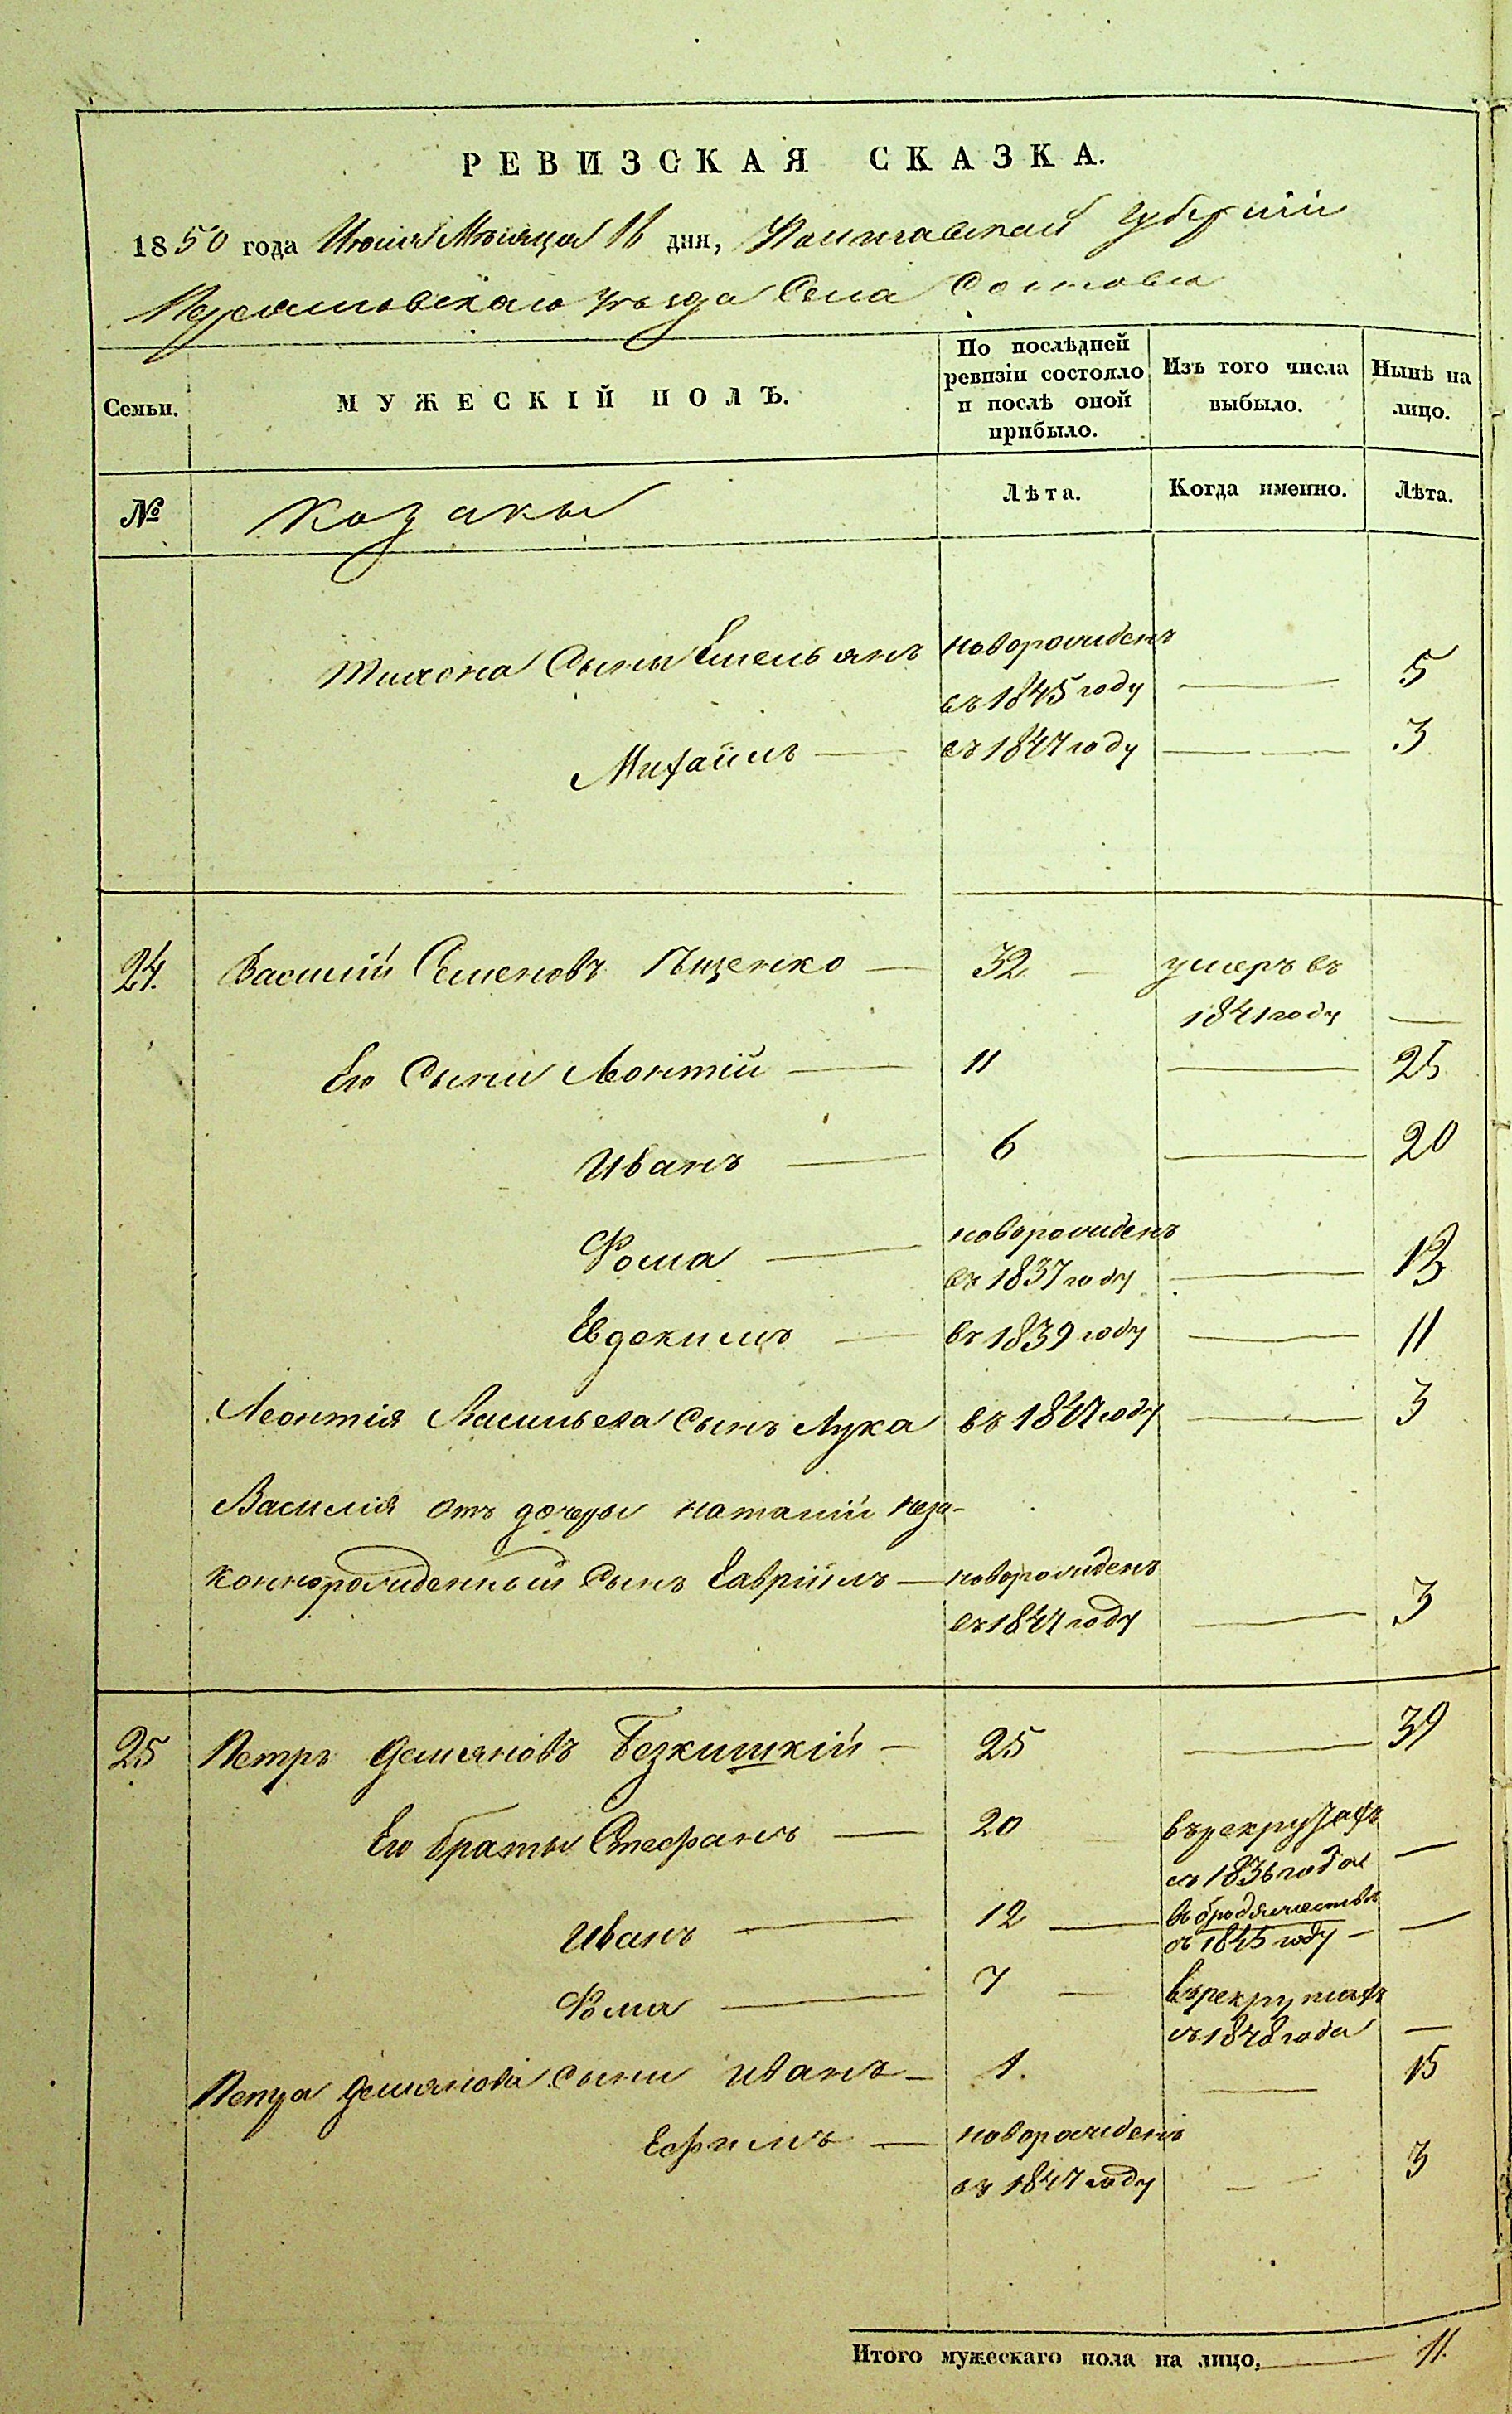 РЕВИЗСКАЯ СКАЗКА.
1850 года Июня Мѣсяца 16 дня, Полтавской Губерніи
Переяславскаго уѣзда Села
Семьи.
МУЖЕСКІЙ ПОЛЪ.
По послѣдней
ревизіи состояло
и послѣ оной
прибыло.
Изъ того числа
выбыло.
Нынѣ на
лицо.
№
Козаки
Лѣта.
Когда именно.
Лѣта.
Тихона Сыны Емельянъ новорожденъ
въ 1845 году — 5
Михаилъ — въ 1847 году — 3
24. Василій Семеновъ — 32 — умеръ въ
1841 году —
Его Сыны Леонтій — 11 — 25
Иванъ — 6 — 20
Фома — новорожденъ
въ 1837 году — 13
Евдокимъ — въ 1839 году — 11
Леонтія Васильева сынъ Лука въ 1847 году — 3
Василія отъ дочеры наталіи неза-
коннорожденный сынъ Гавріилъ — новорожденъ
въ 1847 году — 3
25 Петръ Демяновъ Безкишкій — 25 — 39
Его браты Стефанъ — 20 въ рекрутахъ
съ 1836 года —
Иванъ — 12 — въ бродяжествѣ
съ 1845 году — —
Фома — 7 — въ рекрутахъ
съ 1848 года —
Петра Демянова сыны Иванъ — 1. — 15
Ефимъ — новорожденъ
въ 1847 году — 3
Итого мужескаго пола на лицо, — 11.